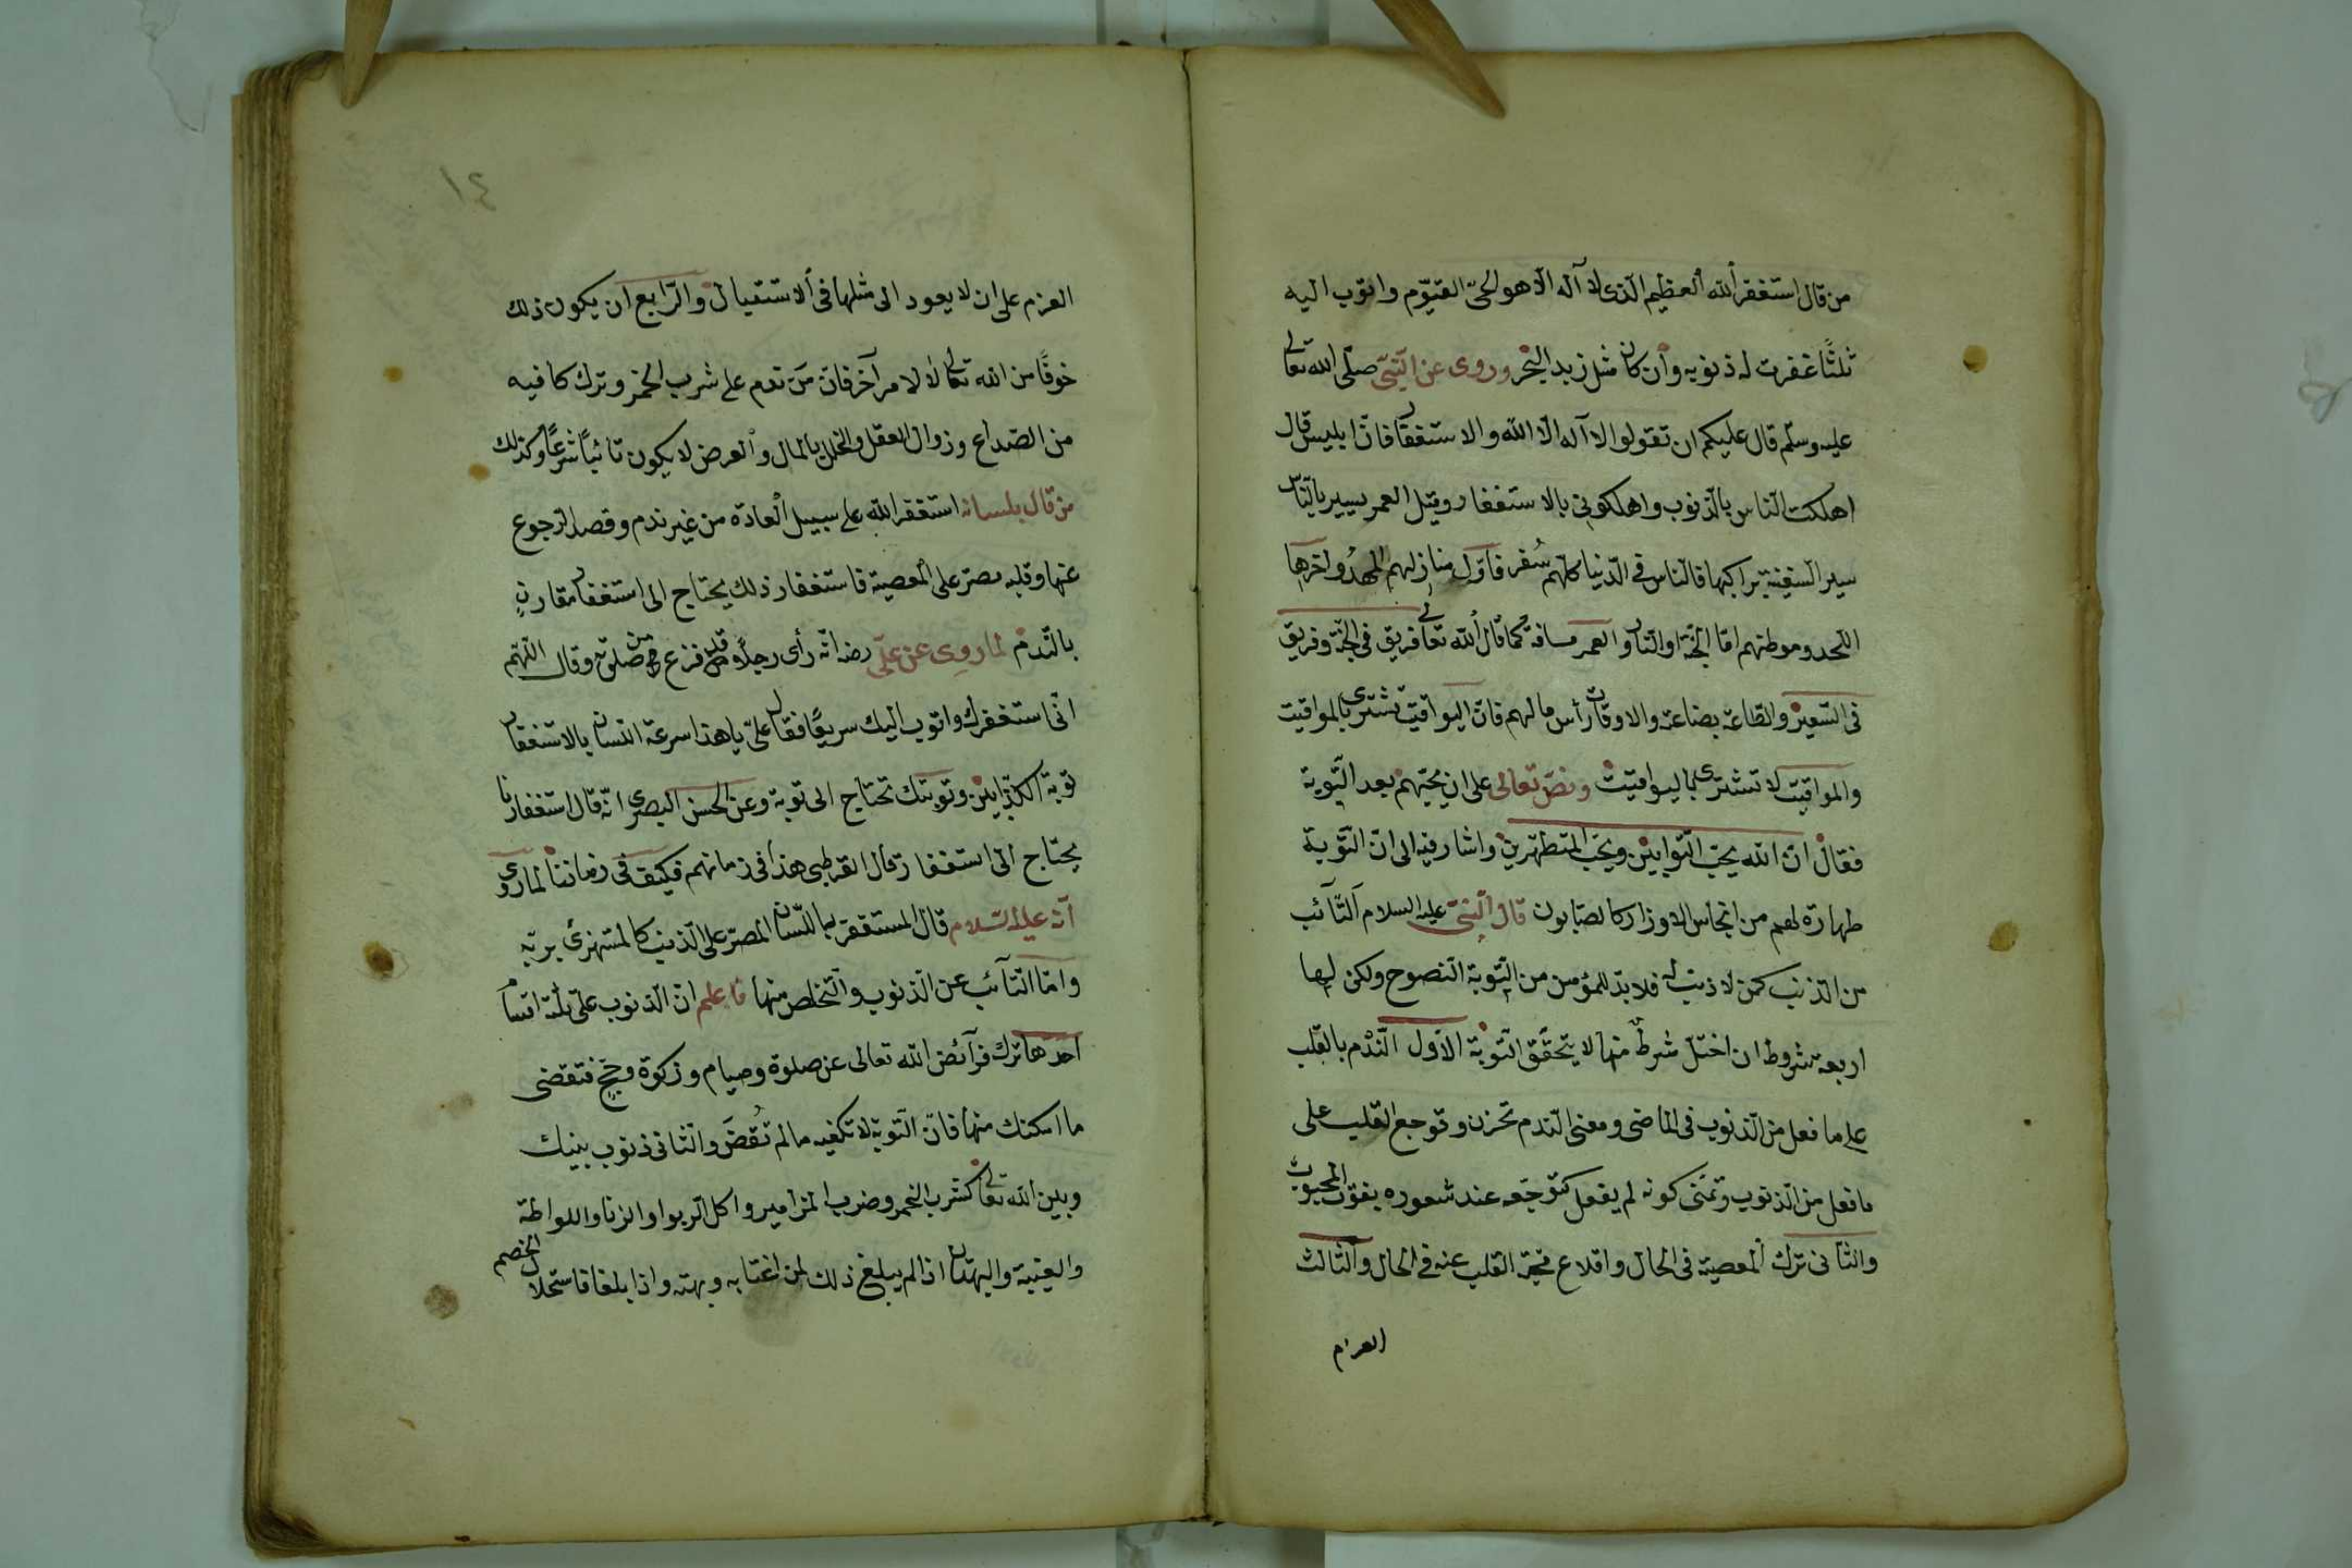 من قال استغفر الله العظيم الذى لا آله الا هو الحىّ القيّوم واتوب اليه
ثلثًا غفرت له ذنوبه وان كان مثل زبد البحر وروى عن النبىّ صلّى الله تعالى
عليه وسلّم قال عليكم ان تقولوا لا آله الّا الله والاستغفار فانّ ابليس قال
اهلكت النّاس بالذنوب واهلكونى بالاستغفار وقيل العمر يسير بالنّاس
سير السفينة براكبها فالناس فى الدّنيا كلّهم سُفر فاوّل منازلهم المهدُ واخرها
اللّحد وموطنهم امّا الجنّة او النّار والعمر مسافة كما قال الله تعالى فريق فى الجنّة وفريق
فى السّعير والطّاعة بضاعة والاوقات رأس مالهم فانّ اليواقيت تشترى بالمواقيت
والمواقيت لا تشترى باليواقيت ونصّ تعالى على ان يحبّهم بعد التّوبة
فقال انّ الله يحبّ التّوابين ويحبّ المتطهّرين واشار فيه الى انّ التّوبة
طهارة لهم من انجاس الاوزار كالصّابون قال النبىّ عليه السلام التّآئب
من الذنب كمن لا ذنب له فلا بدّ للمؤمن من التّوبة النّصوح ولكن لها
اربعة شروط ان اختلّ شرطٌ منها لا يتحقّق التّوبة الاوّل النّدم بالقلب
على ما فعل من الذّنوب فى الماضى ومعنى النّدم تحزن وتوجع القلب على
ما فعل من الذّنوب وتمنّى كونه لم يفعل كتوجّعه عند شعوره بفوت المحبوب
والثّانى ترك المعصية فى الحال واقلاع القلب عنه فى الحال والثّالث
العزم
١٤
العزم على ان لا يعود الى مثلها فى الاستقبال والرّابع ان يكون ذلك
خوفًا من الله تعالى لا لامر آخر فانّ من ندم على شرب الخمر وترك كا فيه
من الصّداع وزوال العقل والخلل بالمال والعرض لا يكون تائبًا شرعًا وكذلك
من قال بلسانه استغفر الله على سبيل العادة من غير ندم وقصد الرجوع
عنها وقلبه مصرّ على المعصية فاستغفار ذلك يحتاج الى استغفار مقارنٍ
بالنّدم لما روى عن علىّ رضى انّه رأى رجلًا وقد فرغ من صلوته وقال اللّهمّ
انّى استغفرك واتوب اليك سريعًا فقال علىّ يا هذا سرعة اللسان بالاستغفار
توبة الكذّابين وتوبتك تحتاج الى توبة وعن الحسن البصرى انّه قال استغفارنا
يحتاج الى استغفار قال القرطبى هذا فى زمانهم فكيف فى زماننا لما روى
انّه عليه السّلام قال المستغفر باللّسان المصرّ على الذّنب كالمستهزئ بربّه
وامّا التّآئب عن الذّنوب والتّخلص منها فاعلم انّ الذّنوب على ثلثة اقسام
احدها ترك فرآئض الله تعالى عن صلوة وصيام وزكوة وحجّ فتقضى
ما امكنك منها فانّ التّوبة لا تكفيه ما لم تُقضَ والثّانى ذنوب بينك
وبين الله تعالى كشرب الخمر وضرب المزامير واكل الرّبوا والزنا واللواطة
والغيبة والبهتان اذا لم يبلغ ذلك لمن اغتابه وبهته واذا بلغا فاستحلال الخصم